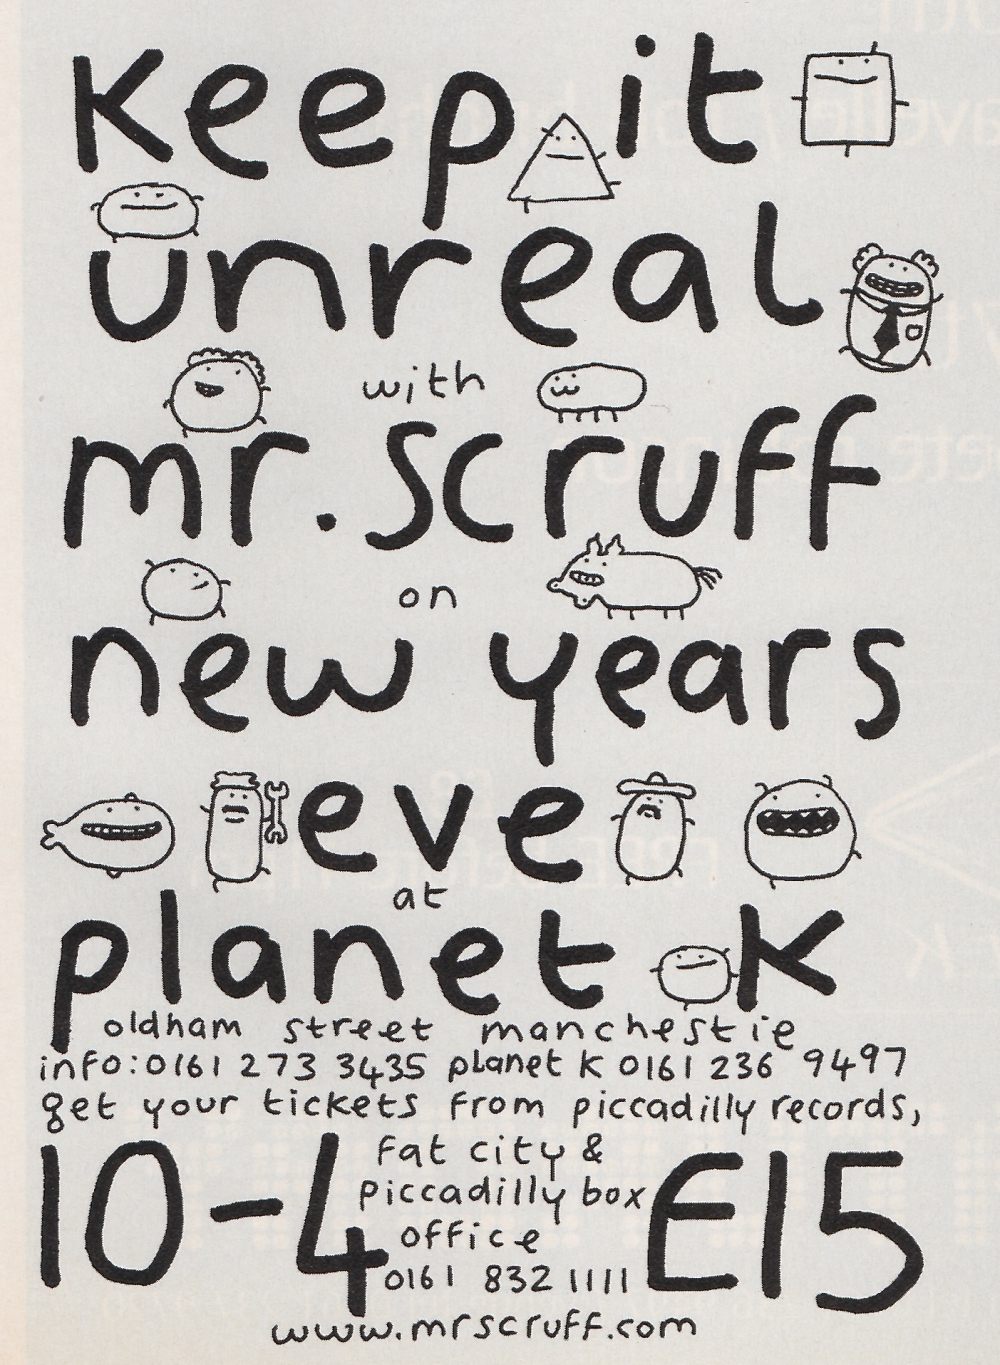 keep it
unreal
with
mr. scruff
on
new years
eve
at
planet K
oldham street manchestie
info: 0161 273 3435 planet K 0161 236 9497
get your tickets from piccadilly records,
fat city &
piccadilly box
office
0161 832 1111
10-4 £15
www.mrscruff.com